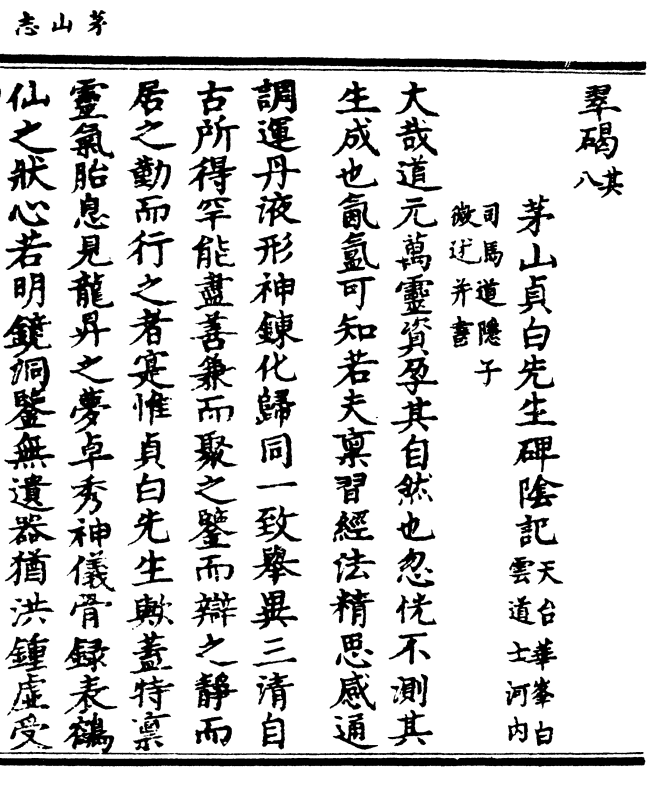 茅山志
翠碣其八
茅山貞白先生碑陰記天台華峯白雲道士河内
司馬道隱子微述并書
大哉道元萬靈資孕其自然也忽恍不測其
生成也氤氳可知若夫稟習經法精思感通
調運丹液形神鍊化歸同一致舉異三清自
古所得罕能盡善兼而聚之鑒而辯之靜而
居之勤而行之者寔惟貞白先生歟蓋特稟
靈氣胎息見龍昇之夢卓秀神儀骨録表鶴
仙之狀心若明鏡洞鑒無遺器猶洪鍾虛受